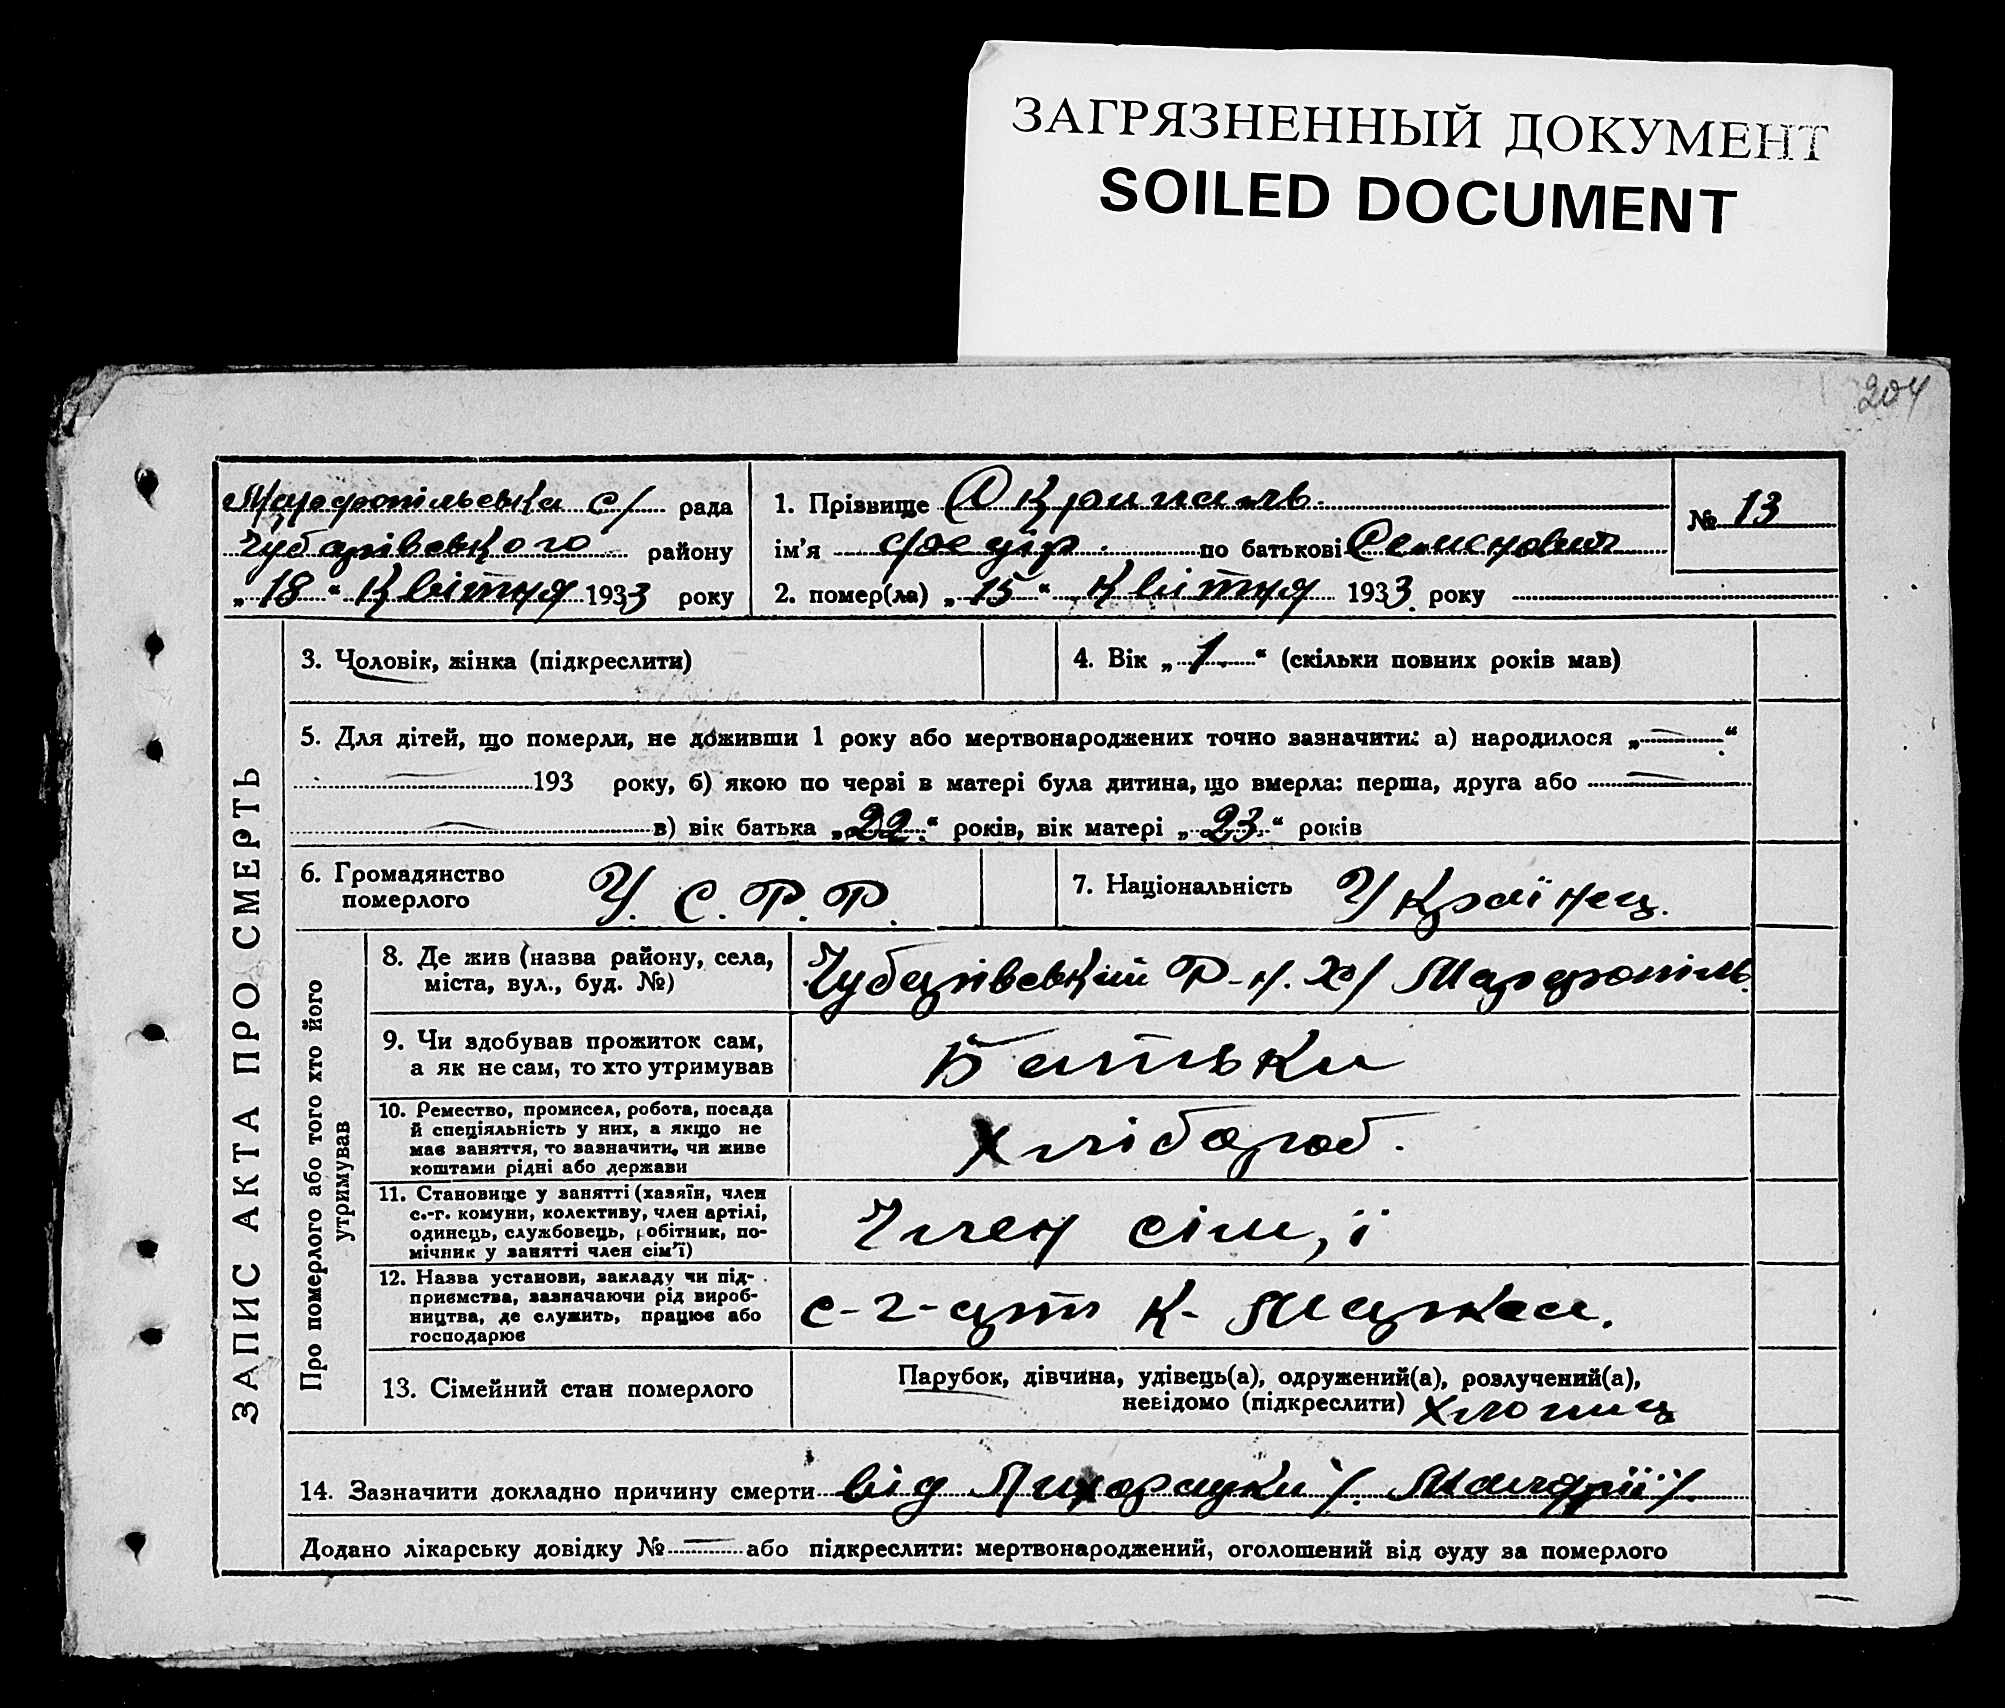 ЗАГРЯЗНЕННЫЙ ДОКУМЕНТ
SOILED DOCUMENT
204
Марфопільська с/ рада
Чубарівського району
„18“ Квітня 1933 року
1. Прізвище Скрипаль
ім'я Федір по батькові Семенович
2. помер(ла) „15“ Квітня 1933 року
№ 13
ЗАПИС АКТА ПРО СМЕРТЬ
3. Чоловік, жінка (підкреслити)
4. Вік „1“ (скільки повних років мав)
5. Для дітей, що померли, не доживши 1 року або мертвонароджених точно зазначити: а) народилося „—“
— 193 року, б) якою по черзі в матері була дитина, що вмерла: перша, друга або —
— в) вік батька „22“ років, вік матері „23“ років
6. Громадянство
померлого
У. С. Р. Р.
7. Національність Українец.
Про померлого або того хто його
утримував
8. Де жив (назва району, села,
міста, вул., буд. №)
Чубарівський Р-н. Х/ Марфопіль.
9. Чи здобував прожиток сам,
а як не сам, то хто утримував
Батьки
10. Ремество, промисел, робота, посада
й спеціяльність у них, а якщо не
має заняття, то зазначити, чи живе
коштами рідні або держави
Хлібороб.
11. Становище у занятті (хазяїн, член
с.-г. комуни, колективу, член артілі,
одинець, службовець, робітник, по-
мічник у занятті член сім'ї)
Член сім,ї
12. Назва установи, закладу чи під-
приємства, зазначаючи рід вироб-
ництва, де служить, працює або
господарює
с-г-арт К- Маркса.
13. Сімейний стан померлого
Парубок, дівчина, удівець(а), одружений(а), розлучений(а),
невідомо (підкреслити) хлопиц
14. Зазначити докладно причину смерти від Лихорадки /. Малярії/.
Додано лікарську довідку № — або підкреслити: мертвонароджений, оголошений від суду за померлого